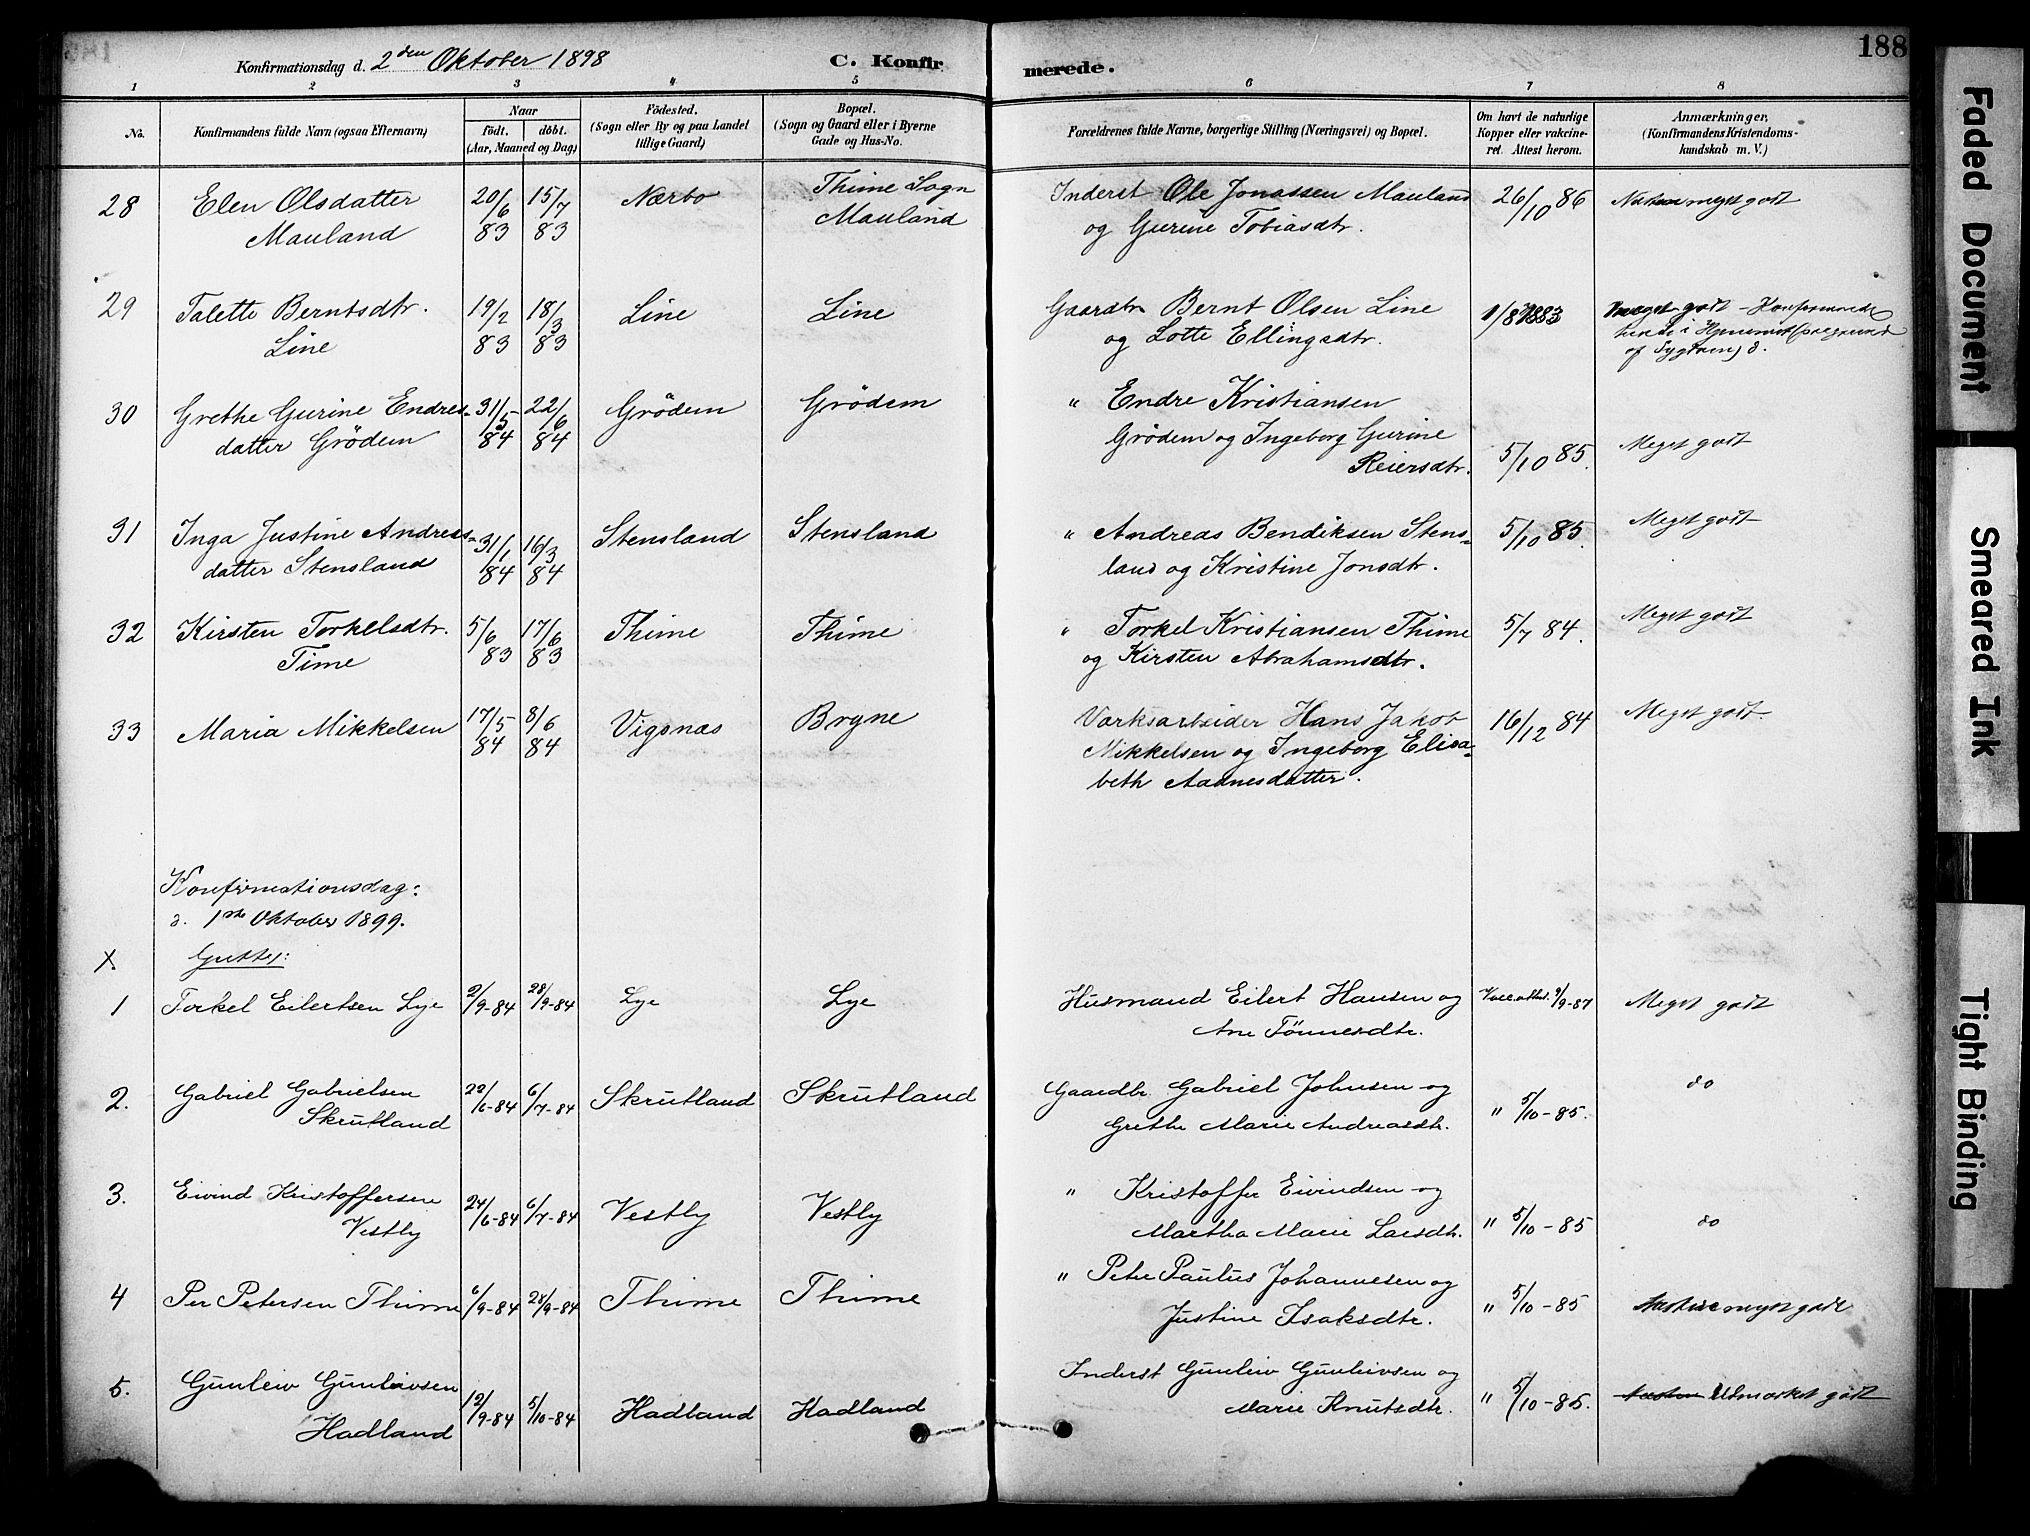 Konfirmationsdag d. 2den Oktober 1898
C. Konfirmerede.
188
1 2 3 4 5 6 7 8
No.
Konfirmandens fulde Navn (ogsaa Efternavn)
Naar
födt. döbt.
(Aar, Maaned og Dag)
Födested.
(Sogn eller By og paa Landet
tillige Gaard)
Bopæl.
(Sogn og Gaard eller i Byerne
Gade og Hus-No.
Forældrenes fulde Navne, borgerlige Stilling (Næringsvei) og Bopæl.
Om havt de naturlige
Kopper eller vakcine-
ret. Attest herom.
Anmærkninger,
(Konfirmandens Kristendoms-
kundskab m. V.)
28 Elen Olsdatter Mauland 20/6 83 15/7 83 Nærbo Thime Sogn Mauland
Inderst Ole Jonassen Mauland
og Gurine Tobiasdtr. 26/10 86 meget godt
29 Talette Berntsdtr. Line 19/2 83 18/3 83 Line Line
Gaardbr. Bernt Olsen Line
og Lotte Ellingsdtr. Meget godt - Konfirmerede
30 Grethe Gurine Endres-
datter Grödem 31/5 84 22/6 84 Grödem Grödem
" Endre Kristiansen
Grödem og Ingeborg Gurine
Reiersdtr. 5/10 85. Meget godt
31 Inga Justine Andreas-
datter Stensland 31/1 84 16/3 84 Stensland Stensland
" Andreas Bendiksen Stens-
land og Kristine Jonsdtr. 5/10 85. Meget godt
32 Kirsten Torkelsdtr. Time 5/6 83 17/6 83 Thime Thime
" Torkel Kristiansen Thime
og Kirsten Abrahamsdtr. 5/7 84. Meget godt
33 Maria Mikkelsen 17/5 84 8/6 84 Vigsnas Bryne
Varksarbeider Hans Jakob
Mikkelsen og Ingeborg Elisa-
beth Aadnesdatter. 16/12 84 Meget godt.
Konfirmationsdag:
d. 1ste Oktober 1899.
X Gutter:
1 Torkel Eilertsen Lye 2/9-84 28/9-84 Lye Lye
Husmand Eilert Hansen og
Ane Tönnesdtr. Meget godt
2. Gabriel Gabrielsen
Skrutland 22/6-84 6/7-84 Skrutland Skrutland
Gaardbr. Gabriel Johnsen og
Grethe Marie Andreasdtr. " 5/10-85. do
3. Eivind Kristoffersen
Vestly 24/6-84 6/7-84 Vestly Vestly
" Kristoffer Eivindsen og
Martha Marie Larsdtr. " 5/10-85 do
4 Per Petersen Thime 6/9-84 28/9-84 Thime Thime
" Peter Paulus Johannesen og
Justine Isaksdtr. " 5/10-85 Næsten meget godt
5. Gunleiv Gunleivsen
Hadland 12/9-84 5/10-84 Hadland Hadland
Inderst Gunleiv Gunleivsen og
Marie Knutsdtr. " 5/10-85. Næsten Udmærket godt
Faded Document
Smeared Ink
Tight Binding